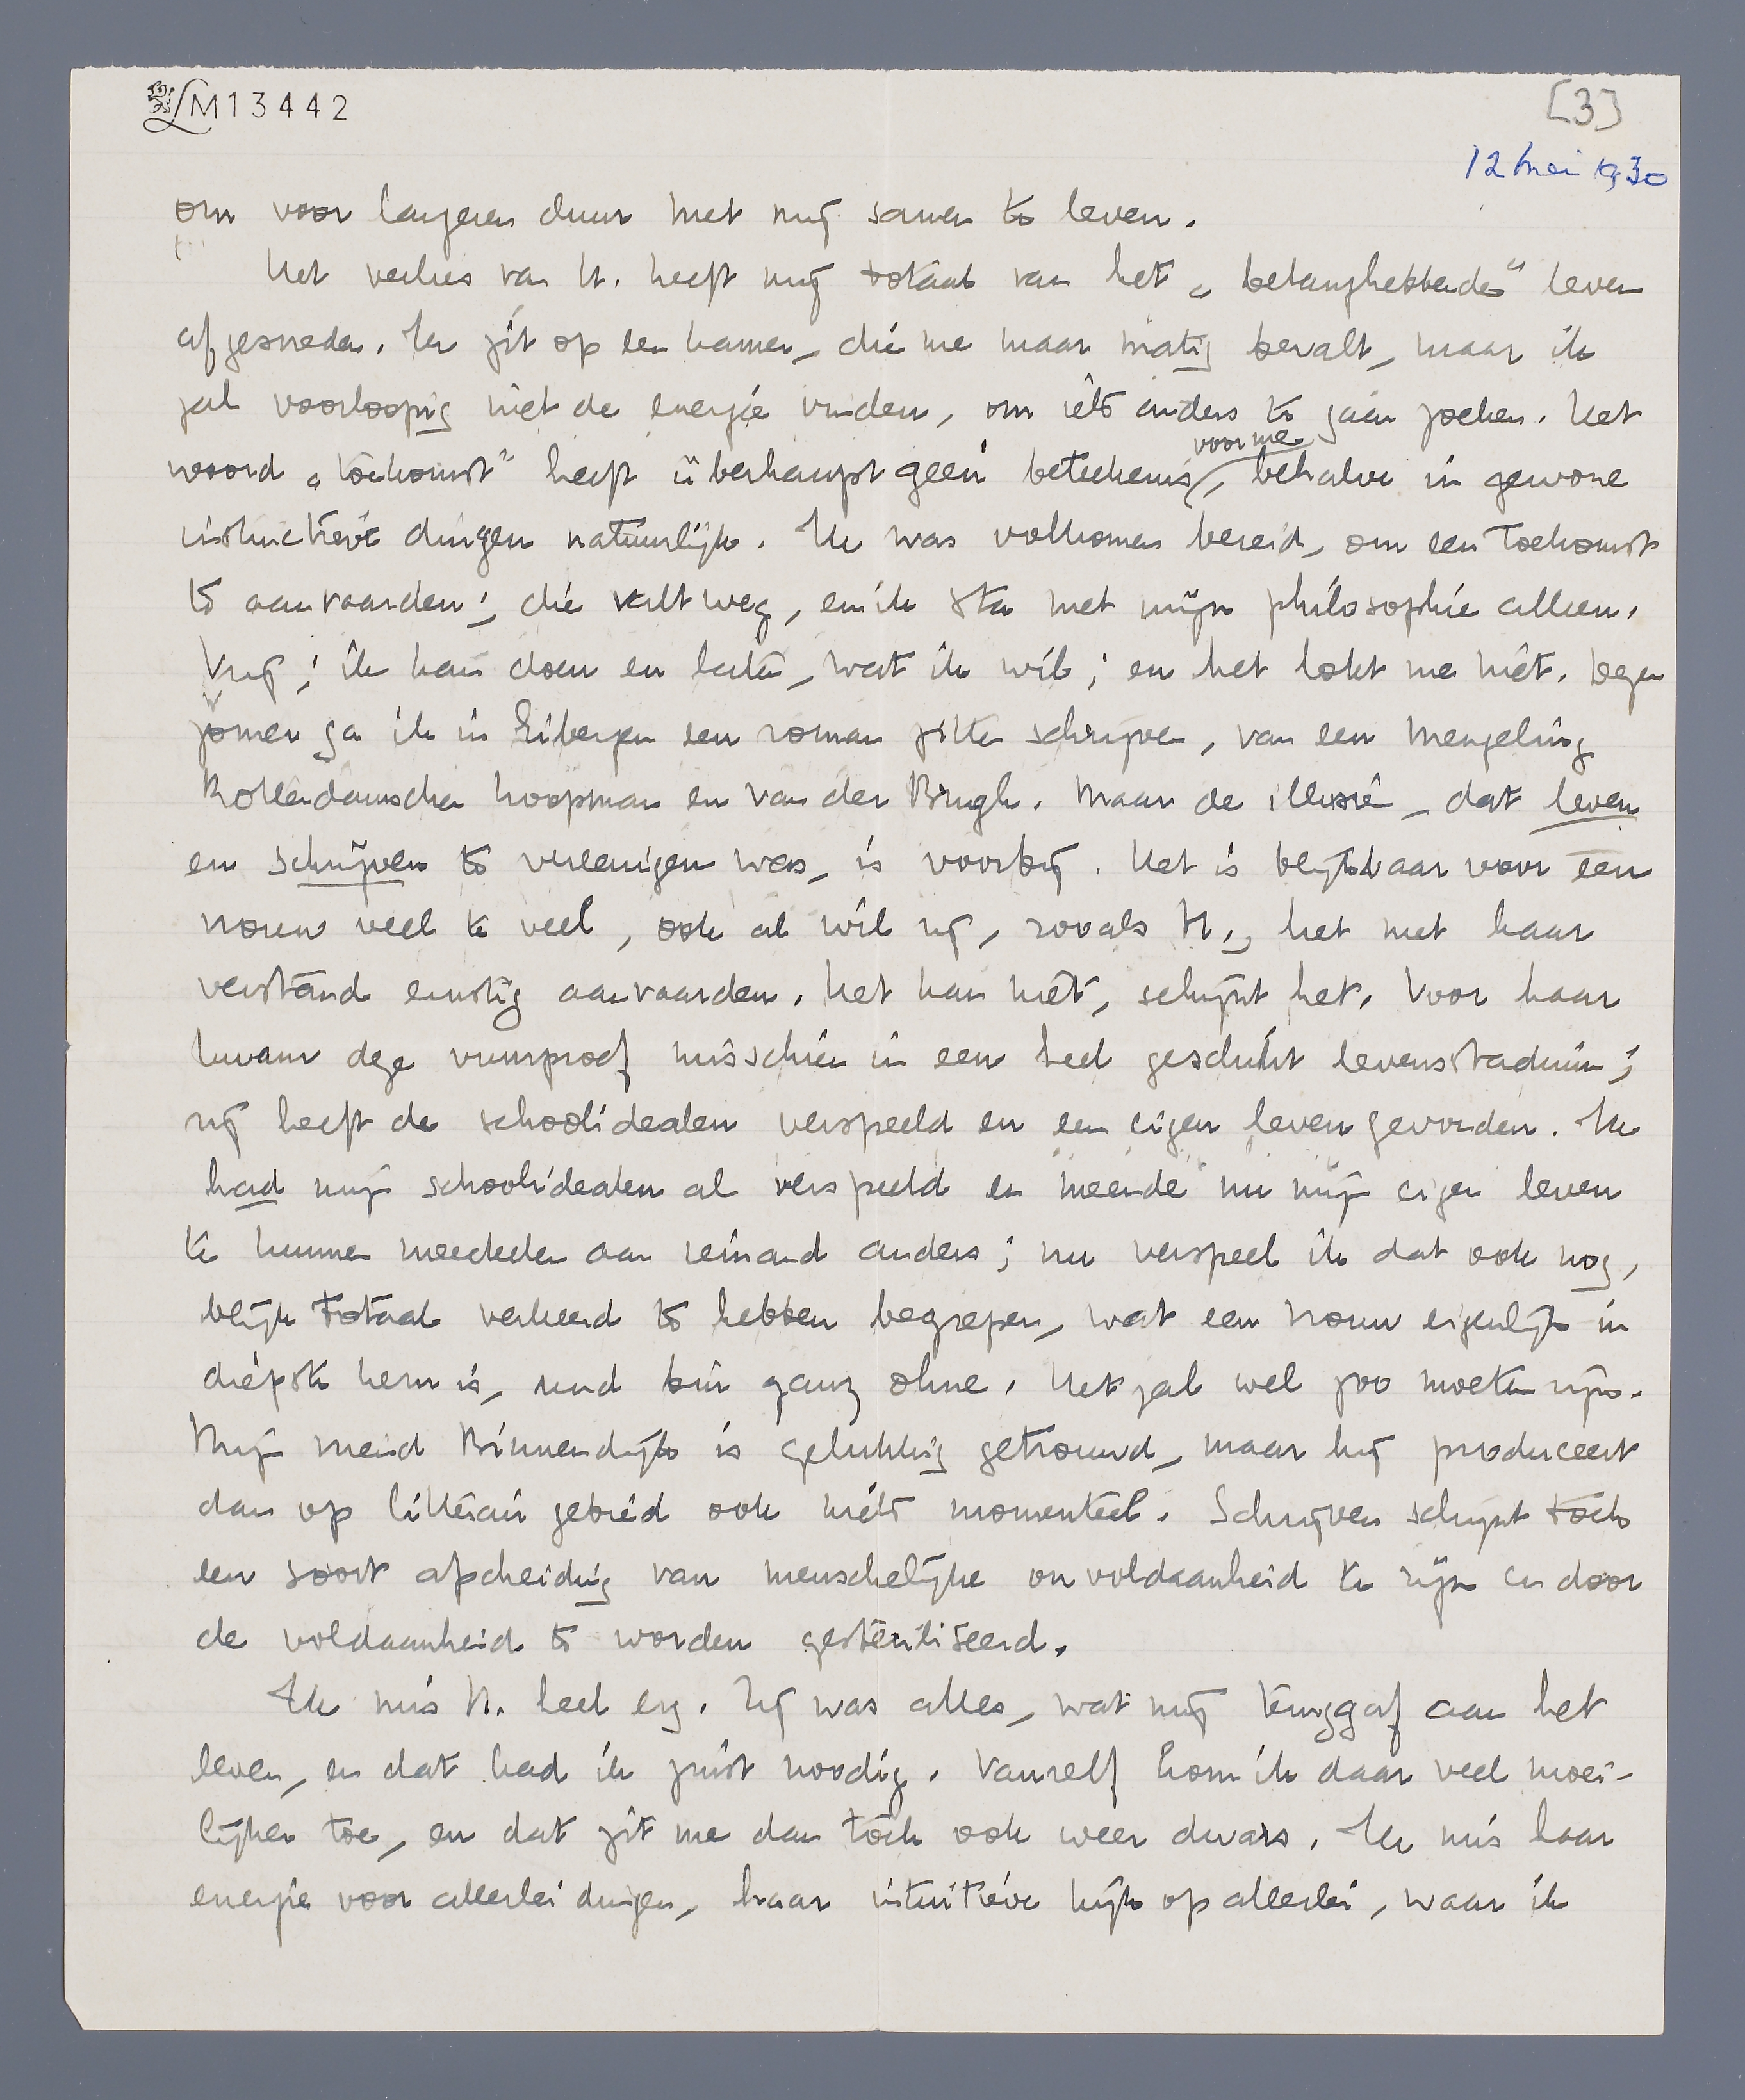 LM13442
[3]
12 mei 1930
om voor langeren duur met mij samen te leven.
Het verlies van H. heeft mij totaal van het „belanghebbende” leven
afgesneden. Ik zit op een kamer, die me maar matig bevalt, maar ik
zal voorloopig niet de energie vinden, om iets anders te gaan zoeken. Het
voor me
woord „toekomst” heeft überhaupt geen beteekenis, behalve in gewone
instinctieve dingen natuurlijk. Ik was volkomen bereid, om een toekomst
te aanvaarden; die valt weg, en ik sta met mijn philosophie alleen.
Vrij; ik kan doen en laten, wat ik wil; en het lokt me niet. Dezen
zomer ga ik in Eibergen een roman zitten schrijven, van een mengeling
Rotterdamschen koopman en van der Brugh. Maar de illusie, dat leven
en schrijven te vereenigen was, is voorbij. Het is blijkbaar voor een
vrouw veel te veel, ook al wil zij, zooals H., het met haar
verstand ernstig aanvaarden. Het kan niet, schijnt het. Voor haar
kwam deze vuurproef misschien in een heel geschikt levensstadium;
zij heeft de schoolidealen verspeeld en een eigen leven gevonden. Ik
had mijn schoolidealen al verspeeld en meende nu mijn eigen leven
te kunnen meedeelen aan iemand anders; nu verspeel ik dat ook nog,
blijk totaal verkeerd te hebben begrepen, wat een vrouw eigenlijk in
diepste kern is, und bin ganz ohne. Het zal wel zoo moeten zijn.
Mijn vriend Binnendijk is gelukkig getrouwd, maar hij produceert
dan op litterair gebied ook niets momenteel. Schrijven schijnt toch
een soort afscheiding van menschelijke onvoldaanheid te zijn en door
de voldaanheid te worden gesteriliseerd.
Ik mis H. heel erg. Zij was alles, wat mij teruggaf aan het
leven, en dat had ik juist noodig. Vanzelf kom ik daar veel moei-
lijker toe, en dat zit me dan toch ook weer dwars. Ik mis haar
energie voor allerlei dingen, haar intuitieve kijk op allerlei, waar ik